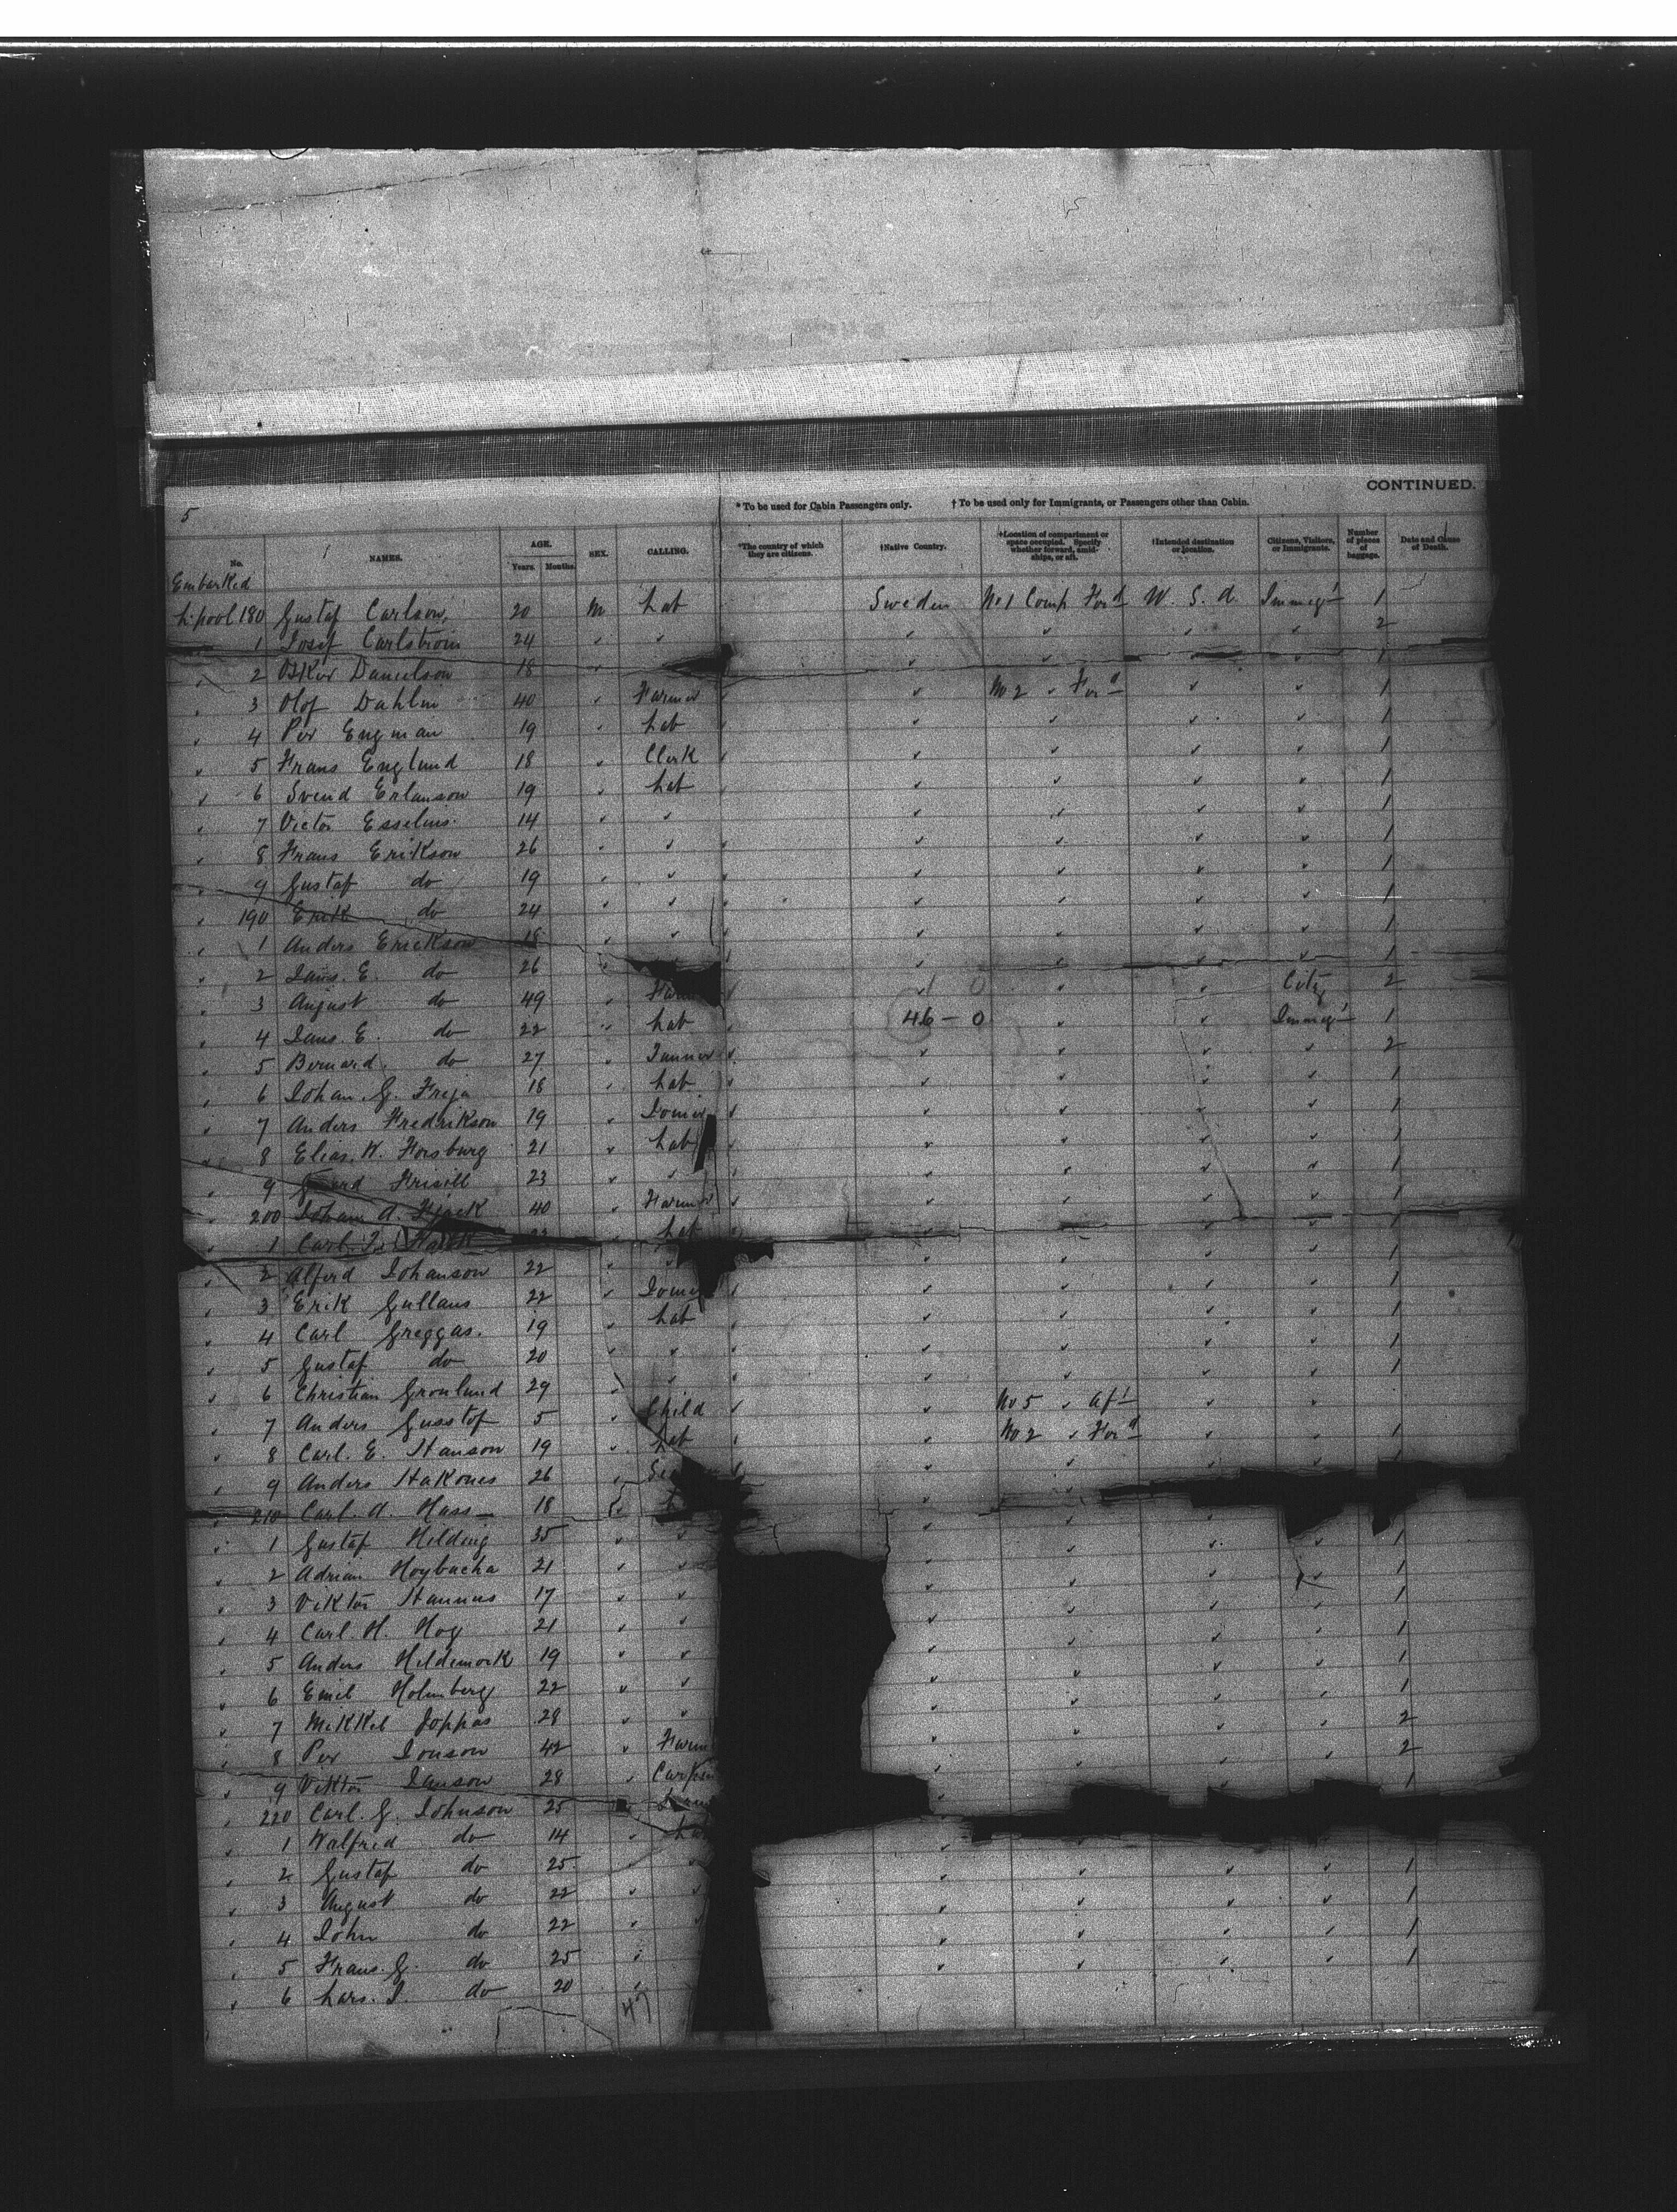 CONTINUED.
5
* To be used for Cabin Passengers only. † To be used only for Immigrants, or Passengers other than Cabin.
No. NAMES. AGE. Years. Months. SEX. CALLING. *The country of which they are citizens. †Native Country. †Location of compartment or space occupied. Specify whether forward, amidships, or aft. †Intended destination or location. Citizens, Visitors, or Immigrants. Number of pieces of baggage. Date and Cause of Death.
Embarked
L'pool 180 Gustaf Carlson 20 M Lab Sweden No 1 Comp Ford W. S. A. Immigt 1
1 Josef Carlstrom 24 2
2 Oskor Danielson 18 1
3 Olof Dahlin 40 Farmer No 2 Ford 1
4 Per Engman 19 Lab 1
5 Frans Englund 18 Clerk 1
6 Svend Erlanson 19 Lab 1
7 Victor Esselius 14 1
8 Frans Erikson 26 1
9 Gustaf do 19 1
190 Erik do 24 1
1 Anders Erickson 18 1
2 Jans. E. do 26 1
3 August do 49 Farm City 2
4 Jans. E. do 22 Lab 46 - 0 Immigt 1
5 Bernard do 27 Tanner 2
6 Johan. G. Freja 18 Lab 1
7 Anders Fredrikson 19 Joiner 1
8 Elias. K. Forsburg 21 Lab 1
9 Frisill 23 1
200 Johan A. 40 Farmer 1
1 Carl Lab 1
2 Alferd Johanson 22 1
3 Erik Gullans 22 Joiner 1
4 Carl Greggas. 19 Lab 1
5 Gustaf do 20 1
6 Christian Gronlund 29 1
7 Anders Gusstof 5 Child No 5 Aft
8 Carl. E. Hanson 19 Lab No 2 Ford 1
9 Anders Hakones 26
210 Carl. A. Hass 18
1 Gustaf Helding 35 1
2 Adrian Hoybacka 21 1
3 Viktor Hannus 17 1
4 Carl. H. Hoy 21 1
5 Anders Heldemork 19 1
6 Emil Holmberg 22 1
7 Mikkel Joppas 28 2
8 Per Jonson 42 Farm 2
9 Viktor Janson 28 Carpen 1
220 Carl. G. Johnson 25
1 Walfred do 14 Lab
2 Gustaf do 25 1
3 August do 22 1
4 John do 22 1
5 Frans. G. do 25 1
6 Lars. J. do 20
47